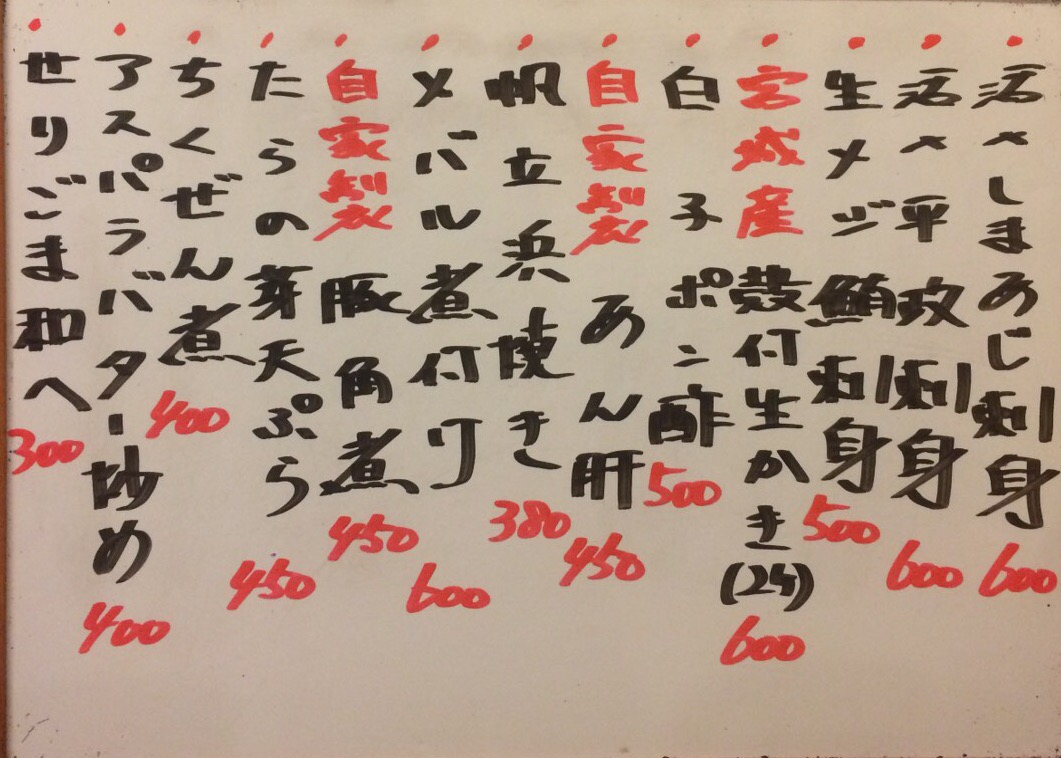 ・活〆しまあじ刺身 600
・活〆平政刺身 600
・生メジ鮪刺身 500
・宮城産 殻付生かき(2ケ) 600
・白子ポン酢 500
・自家製 あん肝 450
・帆立浜焼き 380
・メバル煮付り 600
・自家製 豚角煮 450
・たらの芽天ぷら 450
・ちくぜん煮 400
・アスパラバター炒め 400
・せりごま和へ 300